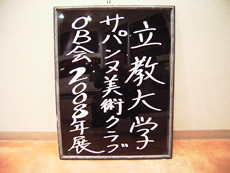 立教大学
サパンヌ美術クラブ
OB会2008年展